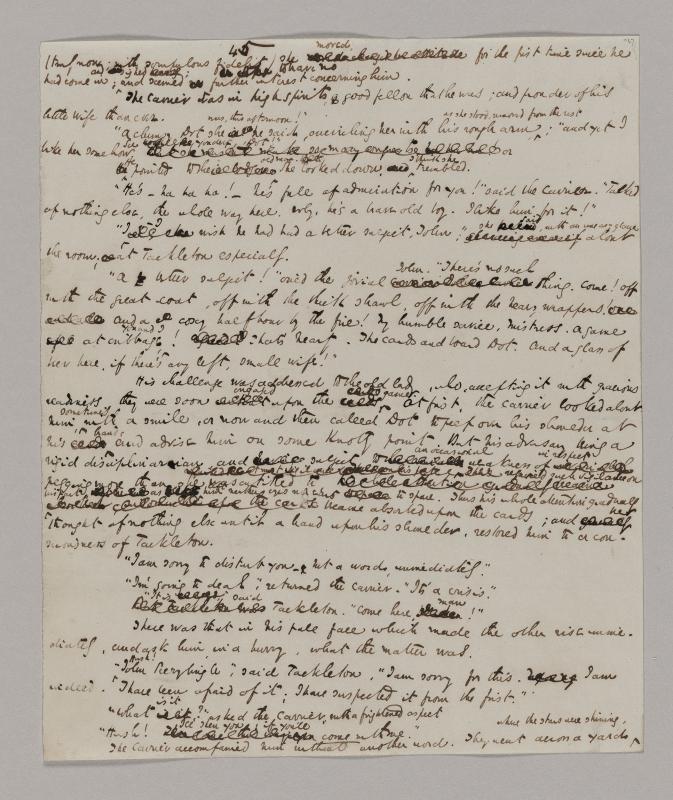 45
moved
(and none with scrupulous fidelity) she for the first time since he
had come in; and seemed to have no further interest concerning him.
The Carrier was in high spirits, good fellow that he was; and fonder of his
little wife than ever.
mus, this afternoon!" as she stood, removed from the rest
"A clumsy Dot she he said, encircling her with his rough arm; "and yet I
like her somehow. See yonder, Dot!"
He pointed to the old man. She looked down. I think she trembled.
"He's – ha ha ha! – he's full of admiration for you!" said the Carrier. "Talked
of nothing else, the whole way here. Why, he's a brave old boy. I like him for it!"
"I wish he had had a better subject, John;" she said, with an uneasy glance about
the room, at Tackleton especially.
"A better subject!" cried the jovial John. "There's no such thing. Come! off
with the great-coat, off with the thick shawl, off with the heavy wrappers!
and a cosy half hour by the fire! My humble service, Mistress. A game
at cribbage, you and I? That's hearty. The cards and board, Dot. And a glass of
beer here, if there's any left, small wife!"
His challenge was addressed to the old lady, who, accepting it with gracious
readiness, they were soon engaged upon the game. At first, the Carrier looked about
him sometimes, with a smile, or now and then called Dot to peep over his shoulder at
his hand, and advise him on some knotty point. But his adversary being a
rigid disciplinarian, and subject to an occasional weakness in respect of
pegging more than she was entitled to, required such vigilance on
his part, as left him neither eyes nor ears to spare. Thus his whole attention gradually
became absorbed upon the cards; and he
thought of nothing else until a hand upon his shoulder, restored him to a con-
sciousness of Tackleton.
"I am sorry to disturb you – but a word, immediately."
"I'm going to deal", returned the Carrier. "It's a crisis."
"It is" said Tackleton. "Come here man!"
There was that in his pale face which made the other rise imme-
diately, and ask him in a hurry, what the matter was.
"Hush! John Peerybingle", said Tackleton, "I am sorry for this. I am
indeed. "I have been afraid of it; I have suspected it from the first."
"What is it?" asked the Carrier, with a frightened aspect
"Hush! I'll show you, if you'll come with me."
The Carrier accompanied him without another word. They went across a yard, where the stars were shining,